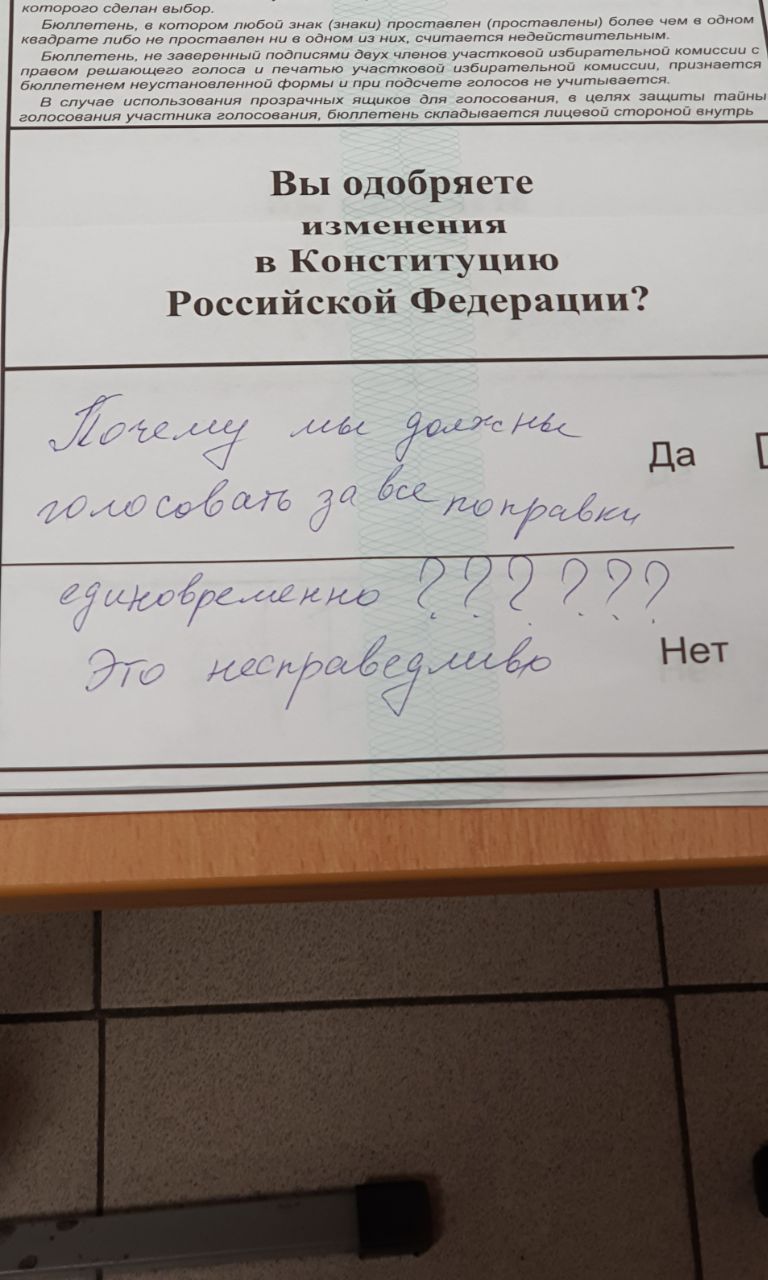 которого сделан выбор.
Бюллетень, в котором любой знак (знаки) проставлен (проставлены) более чем в одном
квадрате либо не проставлен ни в одном из них, считается недействительным.
Бюллетень, не заверенный подписями двух членов участковой избирательной комиссии с
правом решающего голоса и печатью участковой избирательной комиссии, признается
бюллетенем неустановленной формы и при подсчете голосов не учитывается.
В случае использования прозрачных ящиков для голосования, в целях защиты тайны
голосования участника голосования, бюллетень складывается лицевой стороной внутрь
Вы одобряете
изменения
в Конституцию
Российской Федерации?
Почему мы должны
Да
голосовать за все поправки
единовременно ? ? ? ? ? ?
Это несправедливо
Нет